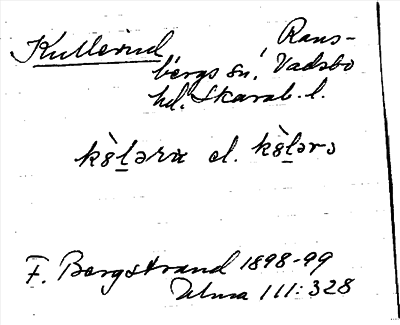 Kullerud Rans-
bergs sn, Vadsbo
hd. Skarab. l.
kö̀lərɑ el. kö̀lərə
F. Bergstrand 1898-99
III: 328